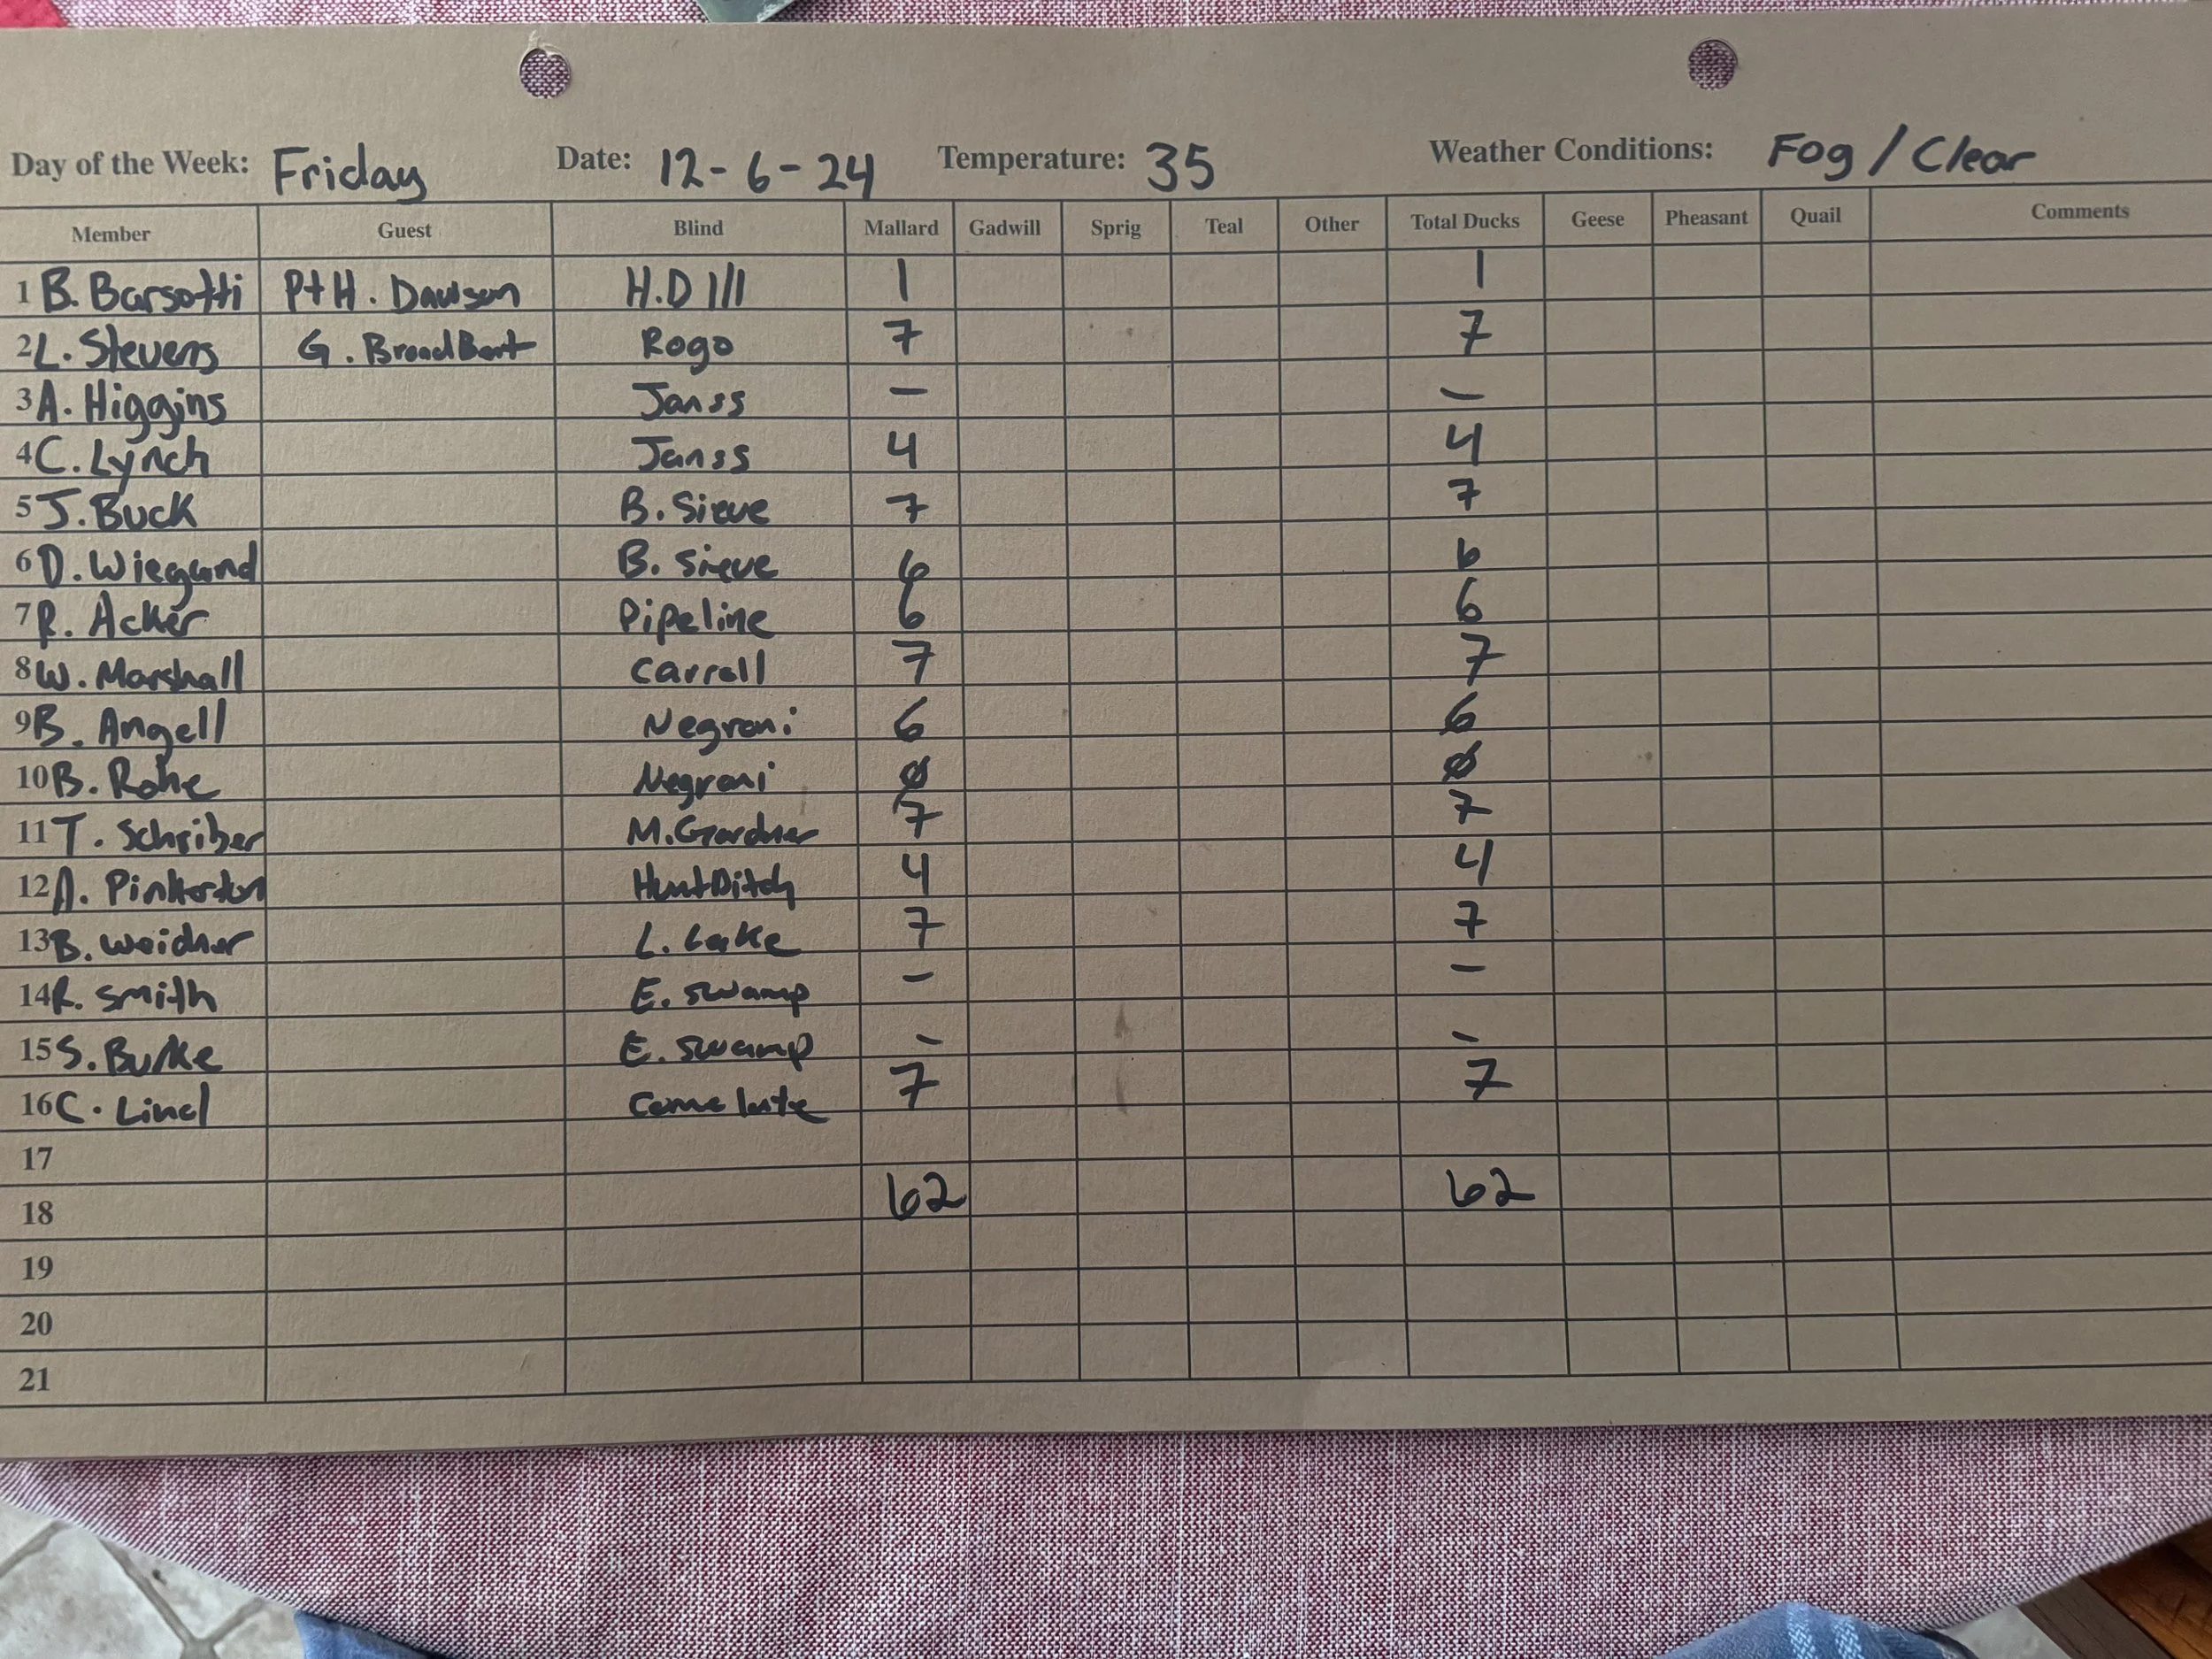 Day of the Week: Friday Date: 12-6-24 Temperature: 35 Weather Conditions: Fog / Clear
Member Guest Blind Mallard Gadwill Sprig Teal Other Total Ducks Geese Pheasant Quail Comments
1 B. Barsotti P+H. Dawson H.D 1 1
2 L. Stevens G. BroadBent Rogo 7 7
3 A. Higgins Janss — —
4 C. Lynch Janss 4 4
5 J. Buck B. Sieve 7 7
6 D. Wiegand B. Sieve 6 6
7 R. Acker Pipeline 6 6
8 W. Marshall Carroll 7 7
9 B. Angell Negroni 6 6
10 B. Rohe Negroni Ø Ø
11 T. Schriber M. Gardner 7 7
12 A. Pinkerton Hunt Ditch 4 4
13 B. Weidner L. Lake 7 7
14 R. Smith E. Swamp — —
15 S. Burke E. Swamp - -
16 C. Lind 7 7
17
18 62 62
19
20
21